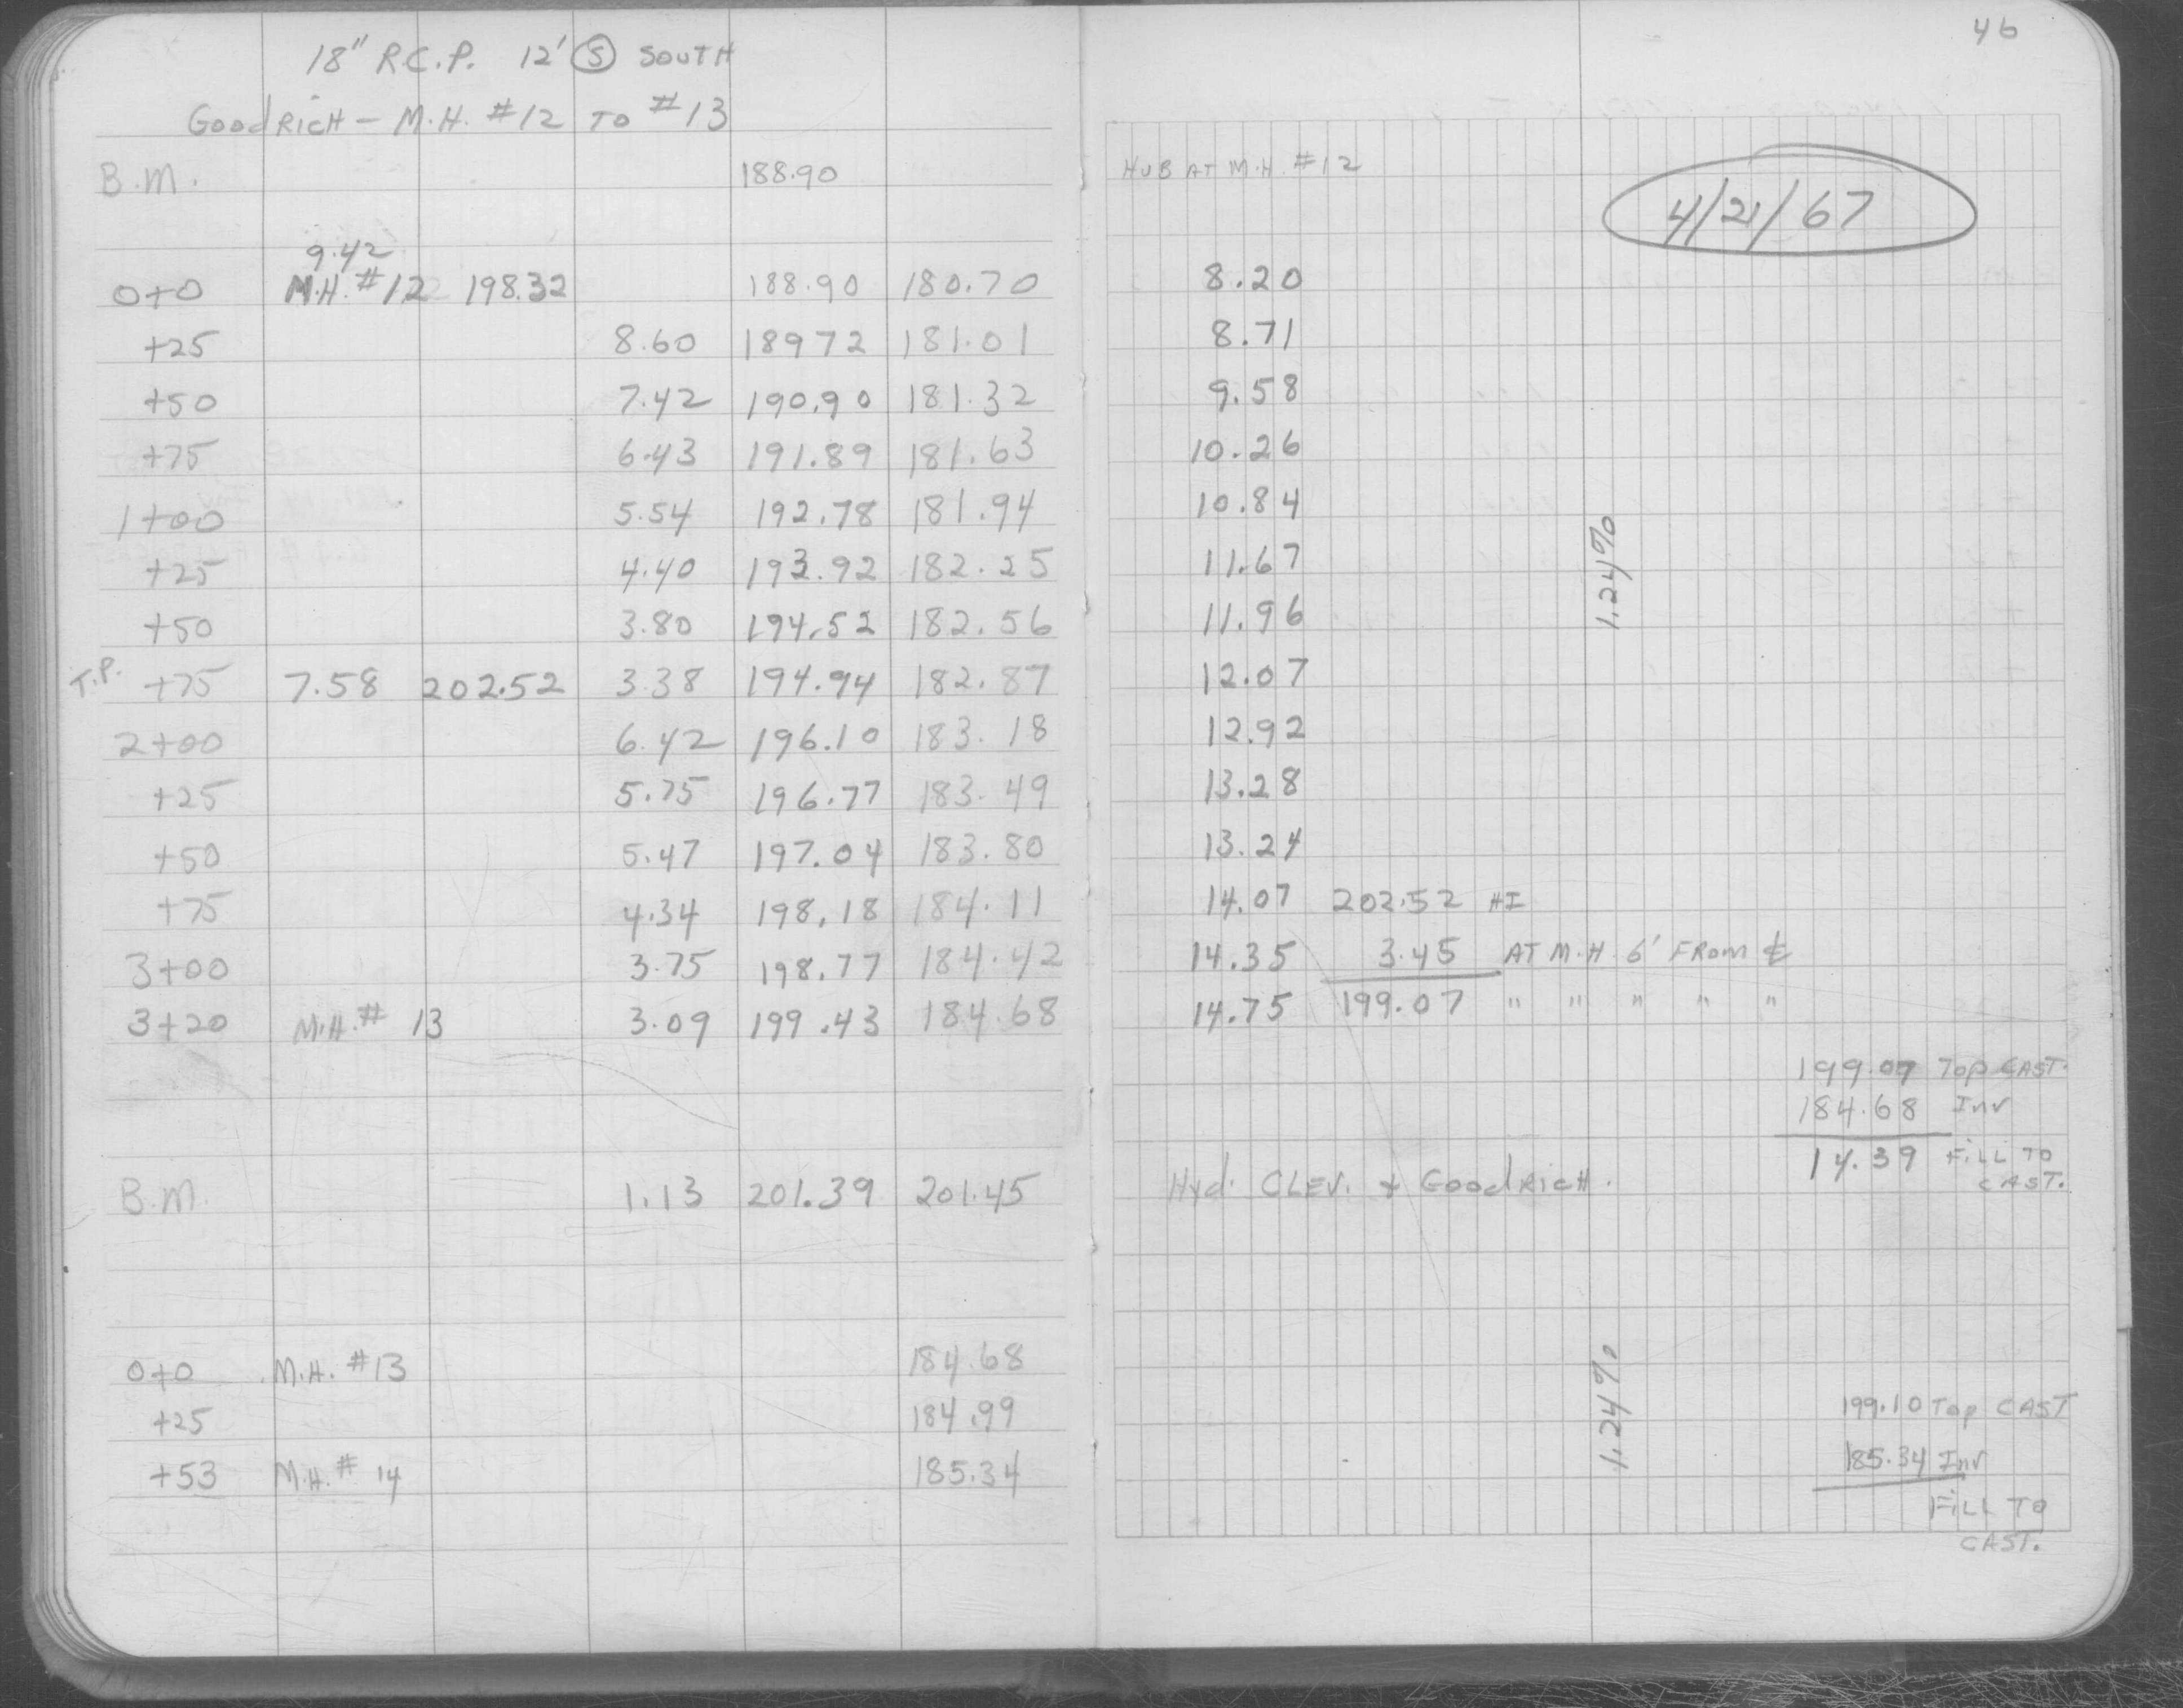 18" R.C.P. 12' Ⓢ SOUTH
GoodRicH - M.H. #12 TO #13
B.M. 188.90
9.42
0+0 M.H. #12 198.32 188.90 180.70
+25 8.60 189 72 181.01
+50 7.42 190.90 181.32
+75 6.43 191.89 181.63
1+00 5.54 192.78 181.94
+25 4.40 193.92 182.25
+50 3.80 194.52 182.56
T.P. +75 7.58 202.52 3.38 194.94 182.87
2+00 6.42 196.10 183.18
+25 5.75 196.77 183.49
+50 5.47 197.04 183.80
+75 4.34 198.18 184.11
3+00 3.75 198.77 184.42
3+20 M.H. # 13 3.09 199.43 184.68
B.M. 1.13 201.39 201.45
0+0 M.H. #13 184.68
+25 184.99
+53 M.H. # 14 185.34
46
HUB AT M.H. #12
4/21/67
8.20
8.71
9.58
10.26
10.84
11.67
11.96
12.07
12.92
13.28
13.24
14.07 202.52 HI
14.35 3.45 AT M.H. 6' FROM ℄
14.75 199.07 " " " " "
1.24%
199.07 Top CAST.
184.68 Inv
14.39 FiLL TO
CAST.
Hyd. CLEV. + GoodRicH.
1.24%
199.10 Top CAST
185.34 Inv
FiLL TO
CAST.